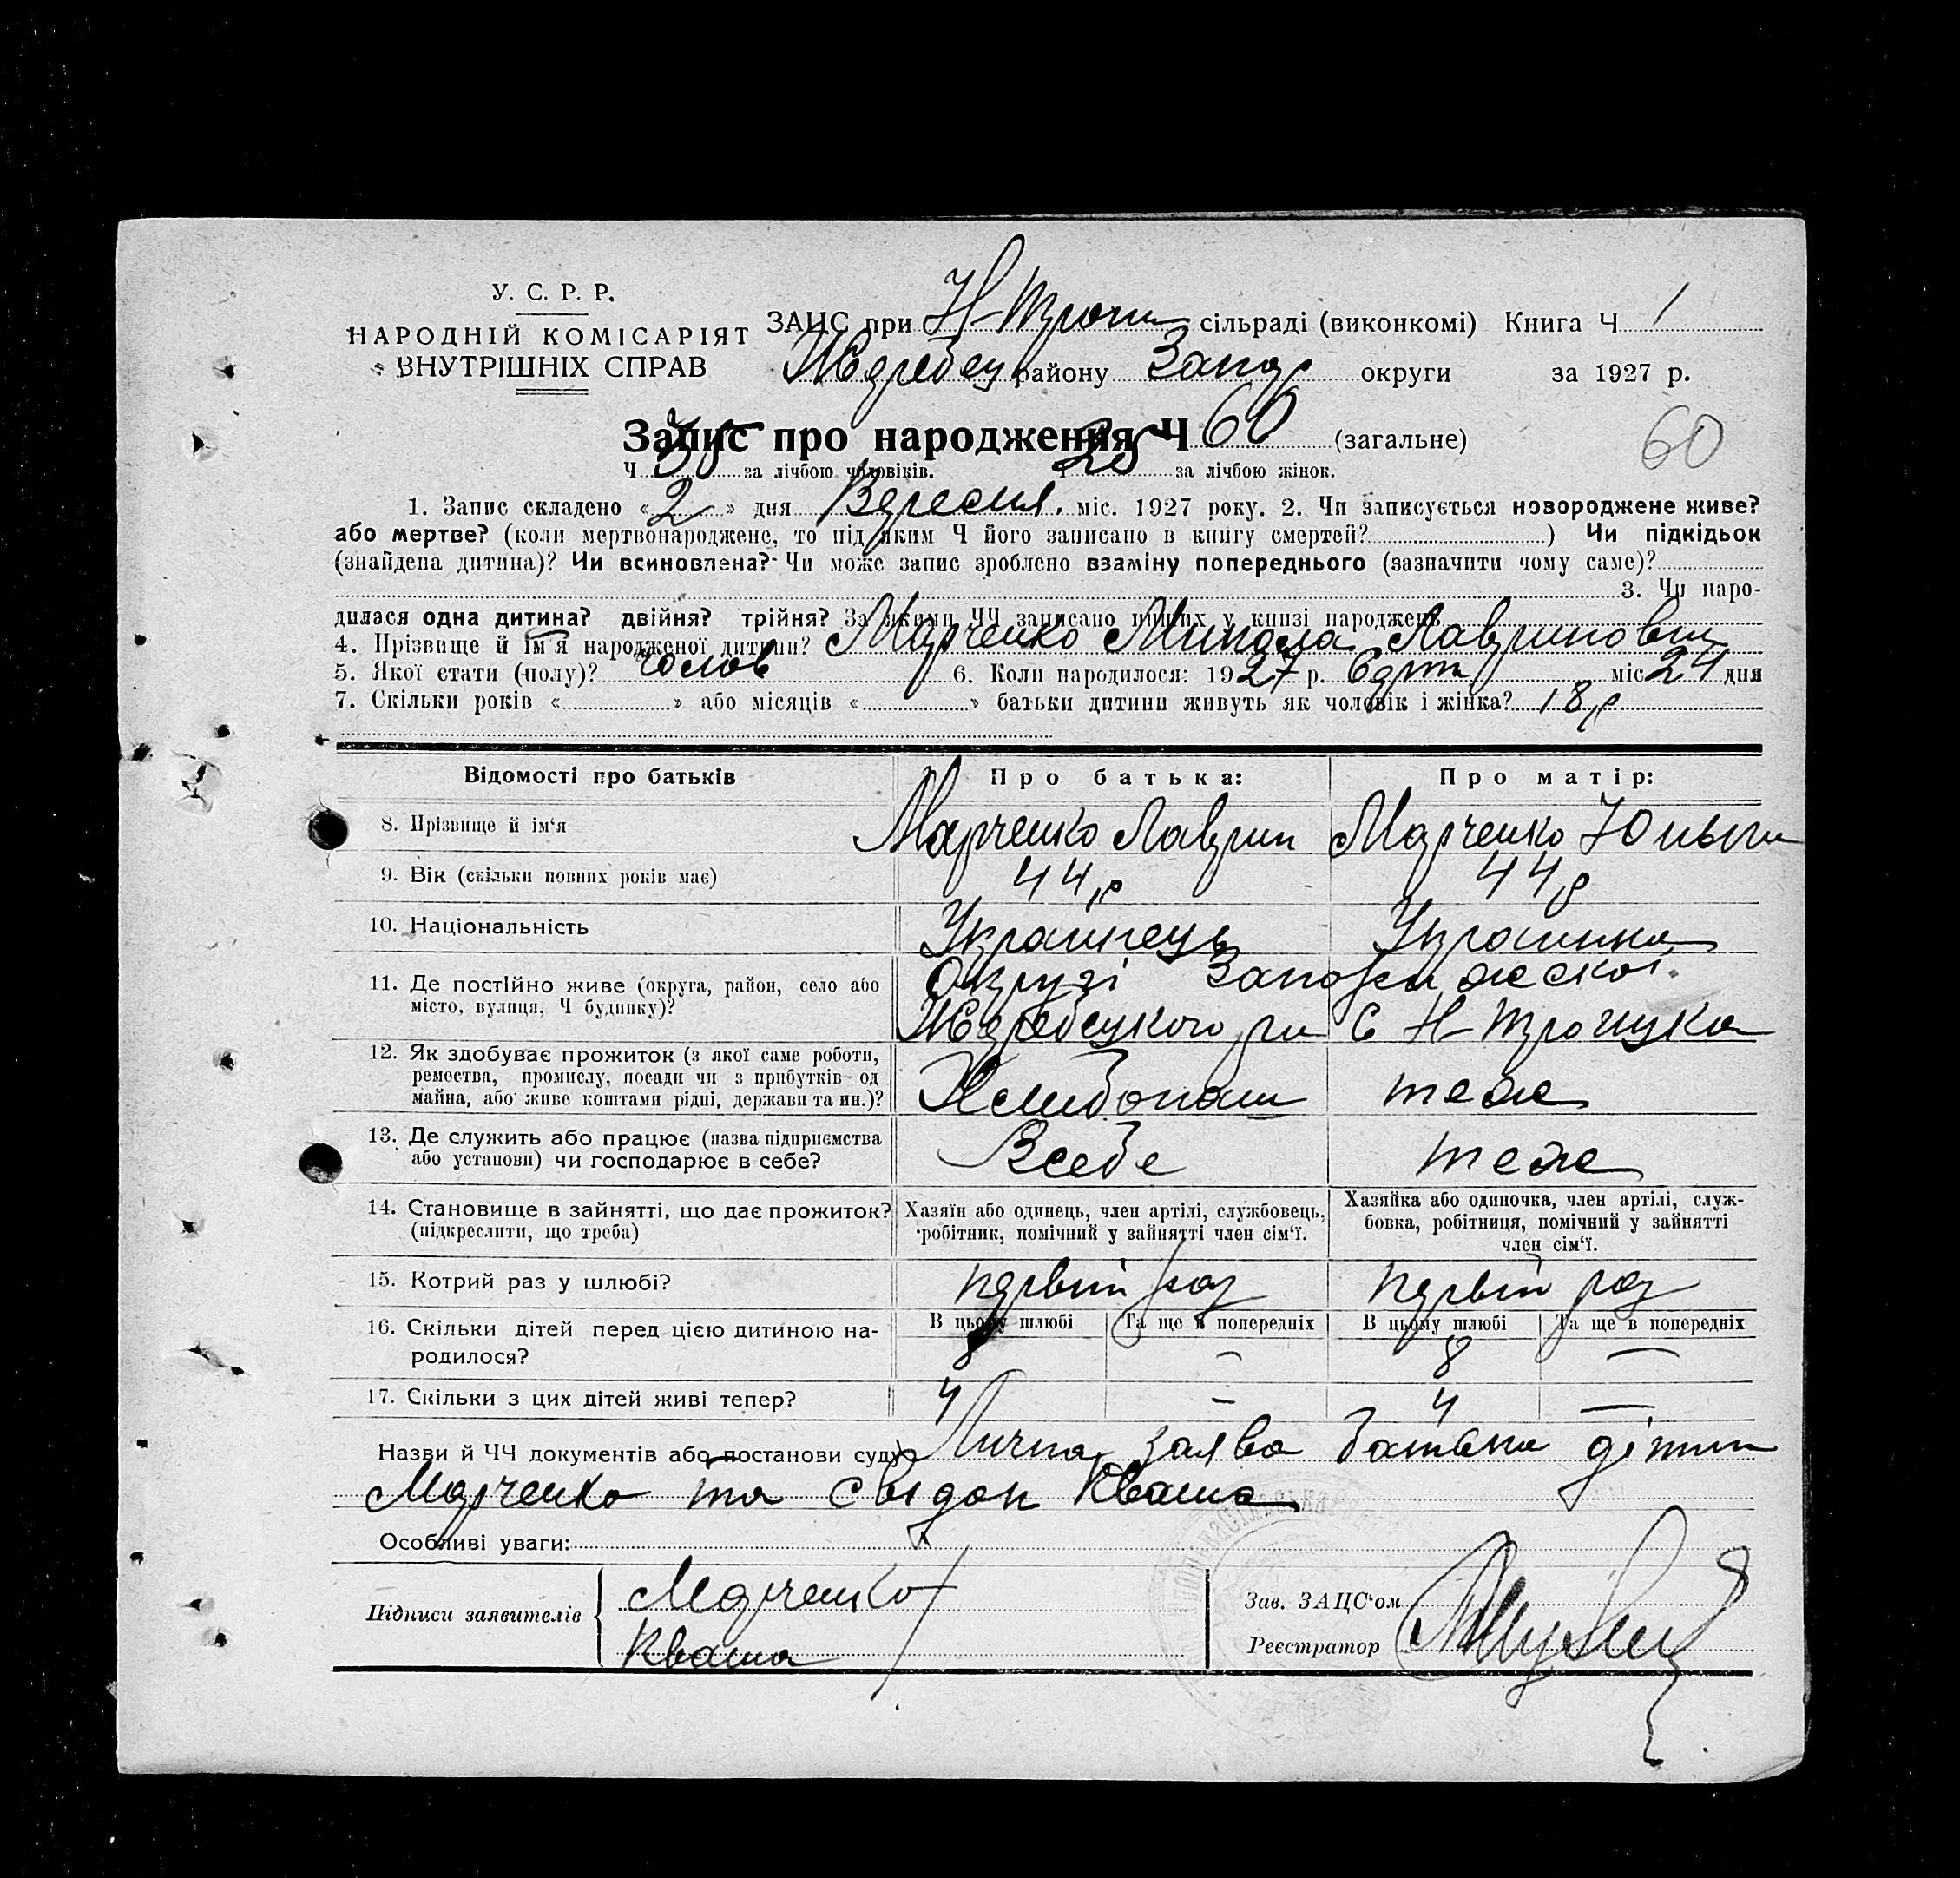 У. С. Р. Р.
НАРОДНІЙ КОМІСАРІЯТ
ВНУТРІШНІХ СПРАВ
ЗАЦС при Н-Троїц сільраді (виконкомі) Книга Ч 1
Жеребец району Запор округи за 1927 р.
Запис про народження Ч 60 (загальне)
60
Ч 35 за лічбою чоловіків. Ч 25 за лічбою жінок.
1. Запис складено «2» дня Вересня. міс. 1927 року. 2. Чи записується новороджене живе?
або мертве? (коли мертвонароджене, то під яким Ч його записано в книгу смертей? ) Чи підкідьок
(знайдена дитина)? Чи всиновлена? Чи може запис зроблено взаміну попереднього (зазначити чому саме)?
3. Чи наро-
дилася одна дитина? двійня? трійня? За якими ЧЧ записано инших у книзі народжень
4. Прізвище й ім'я народженої дитини? Марченко Микола Лавринович
5. Якої стати (полу)? чолов 6. Коли народилося: 1927 р. Серп міс 24 дня
7. Скільки років « » або місяців « » батьки дитини живуть як чоловік і жінка? 18 р
Відомості про батьків Про батька: Про матір:
8. Прізвище й ім'я Марченко Лаврин Марченко
9. Вік (скільки повних років має) 44 р 44 р
10. Національність Українець Українка
11. Де постійно живе (округа, район, село або Округі Запоріжскої
місто, вулиця, Ч будинку)? Жеребецького рн С Н-Троицка
12. Як здобуває прожиток (з якої саме роботи,
ремества, промислу, посади чи з прибутків од Хлибопаш теже
майна, або живе коштами рідні, держави та ин.)?
13. Де служить або працює (назва підприємства Всебе теже
або установи) чи господарює в себе?
14. Становище в зайнятті, що дає прожиток? Хазяїн або одинець, член артілі, службовець, Хазяйка або одиночка, член артілі, служ-
(підкреслити, що треба) робітник, помічний у зайнятті член сім'ї. бовка, робітниця, помічний у зайнятті
член сім'ї.
15. Котрий раз у шлюбі? первій раз первій раз
16. Скільки дітей перед цією дитиною на- В цьому шлюбі Та ще в попередніх В цьому шлюбі Та ще в попередніх
родилося? 8 — 8 —
17. Скільки з цих дітей живі тепер? 4 — 4 —
Назви й ЧЧ документів або постанови суду Лична заява батька дітини
Марченко та свідок Кваша
Особливі уваги:
Підписи заявителів Марченко
Кваша
Зав. ЗАЦС'ом
Реєстратор